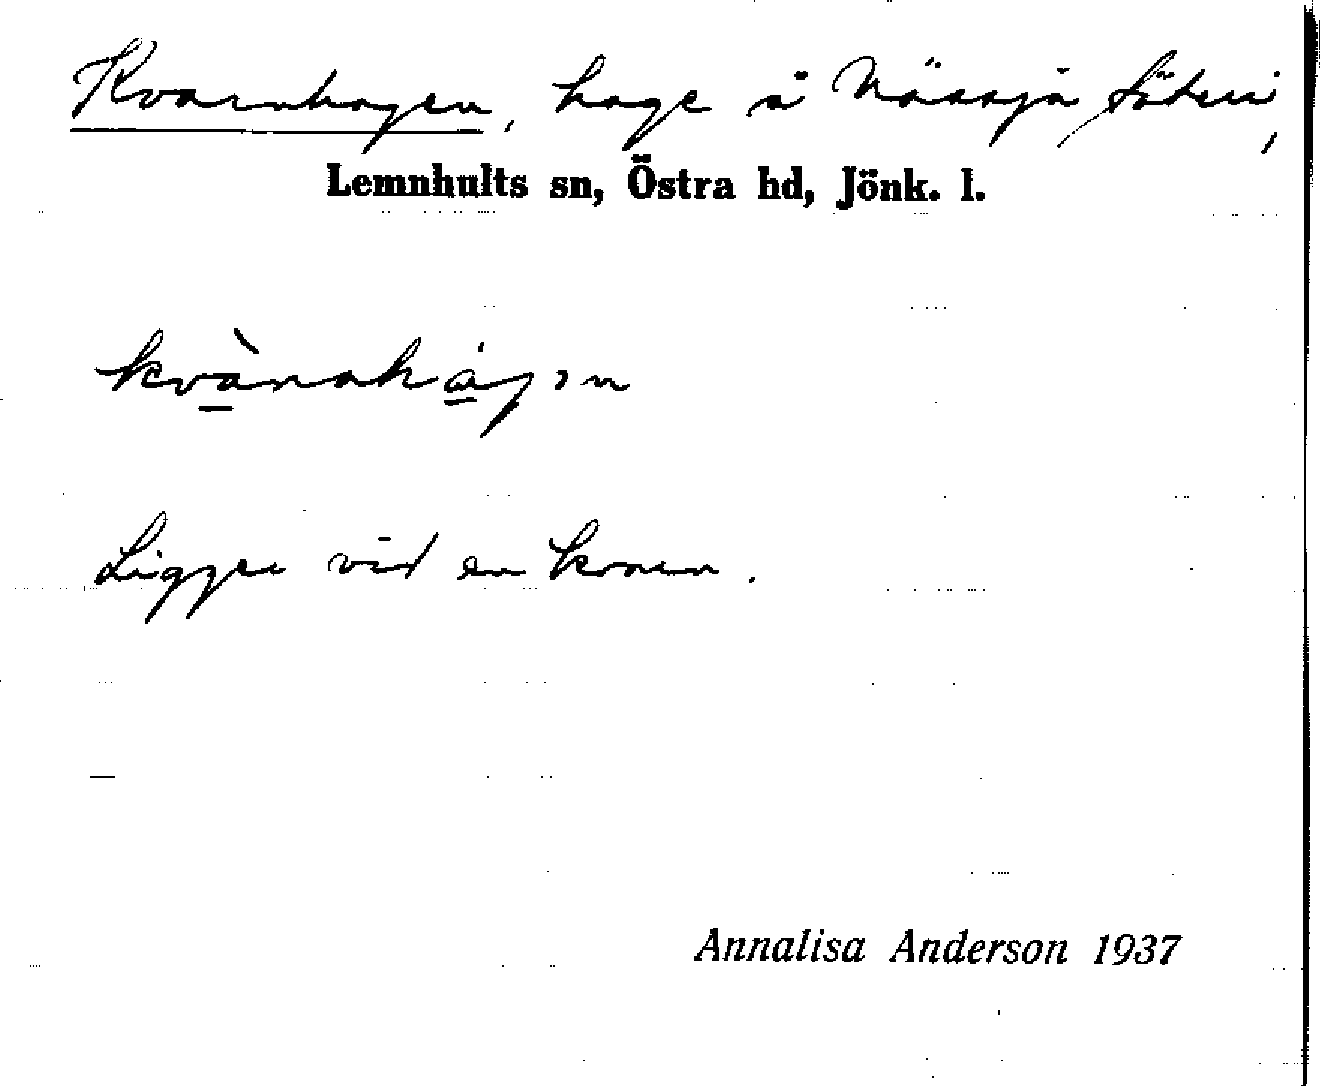 Kvarnhagen, hage å Nässja Säteri,
Lemnhults sn, Östra hd, Jönk. l.
Ligger vid en kvarn.
Annalisa Anderson 1937